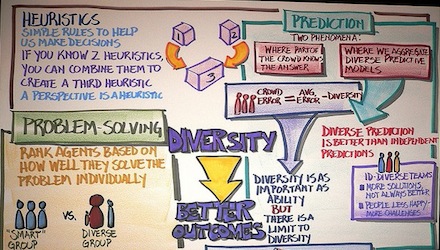 HEURISTICS
SIMPLE RULES TO HELP
US MAKE DECISIONS
IF YOU KNOW 2 HEURISTICS,
YOU CAN COMBINE THEM TO
CREATE A THIRD HEURISTIC
A PERSPECTIVE IS A HEURISTIC
1
2
3
PREDICTION
TWO PHENOMENA:
WHERE PART OF
THE CROWD KNOWS
THE ANSWER
WHERE WE AGGREGATE
DIVERSE PREDICTIVE
MODELS
CROWD ERROR = AVG. ERROR - DIVERSITY
PROBLEM-SOLVING
RANK AGENTS BASED ON
HOW WELL THEY SOLVE THE
PROBLEM INDIVIDUALLY
"SMART" GROUP
VS.
DIVERSE GROUP
DIVERSITY
BETTER
OUTCOMES
DIVERSITY IS AS
IMPORTANT AS
ABILITY
BUT
THERE IS A
LIMIT TO
DIVERSITY
DIVERSE PREDICTION
IS BETTER THAN INDEPENDENT
PREDICTIONS
ID-DIVERSE TEAMS
MORE SOLUTIONS,
NOT ALWAYS BETTER
PEOPLE LESS HAPPY
MORE CHALLENGES